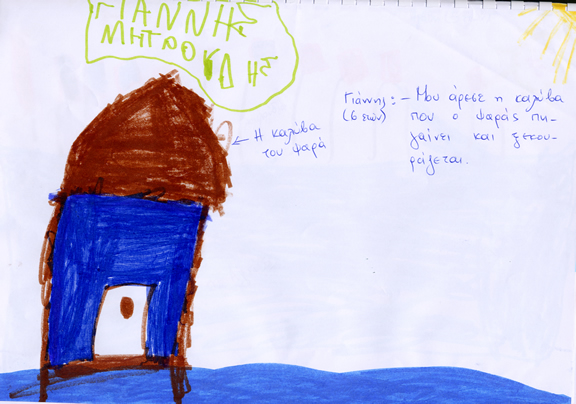 ΓΙΑΝΝΗΣ
ΜΗΤΡΟΥΔΗΣ
← Η καλύβα
του ψαρά
Γιάννης: - Μου άρεσε η καλύβα
(6 ετών) που ο ψαράς πη-
γαίνει και ξεκου-
ράζεται.